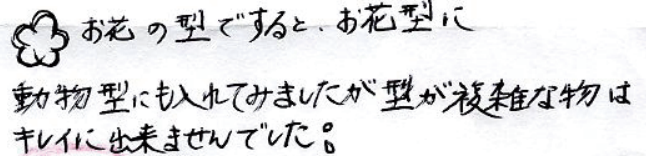 お花の型ですると、お花型に
動物型にも入れてみましたが型が複雑な物は
キレイに出来ませんでした。